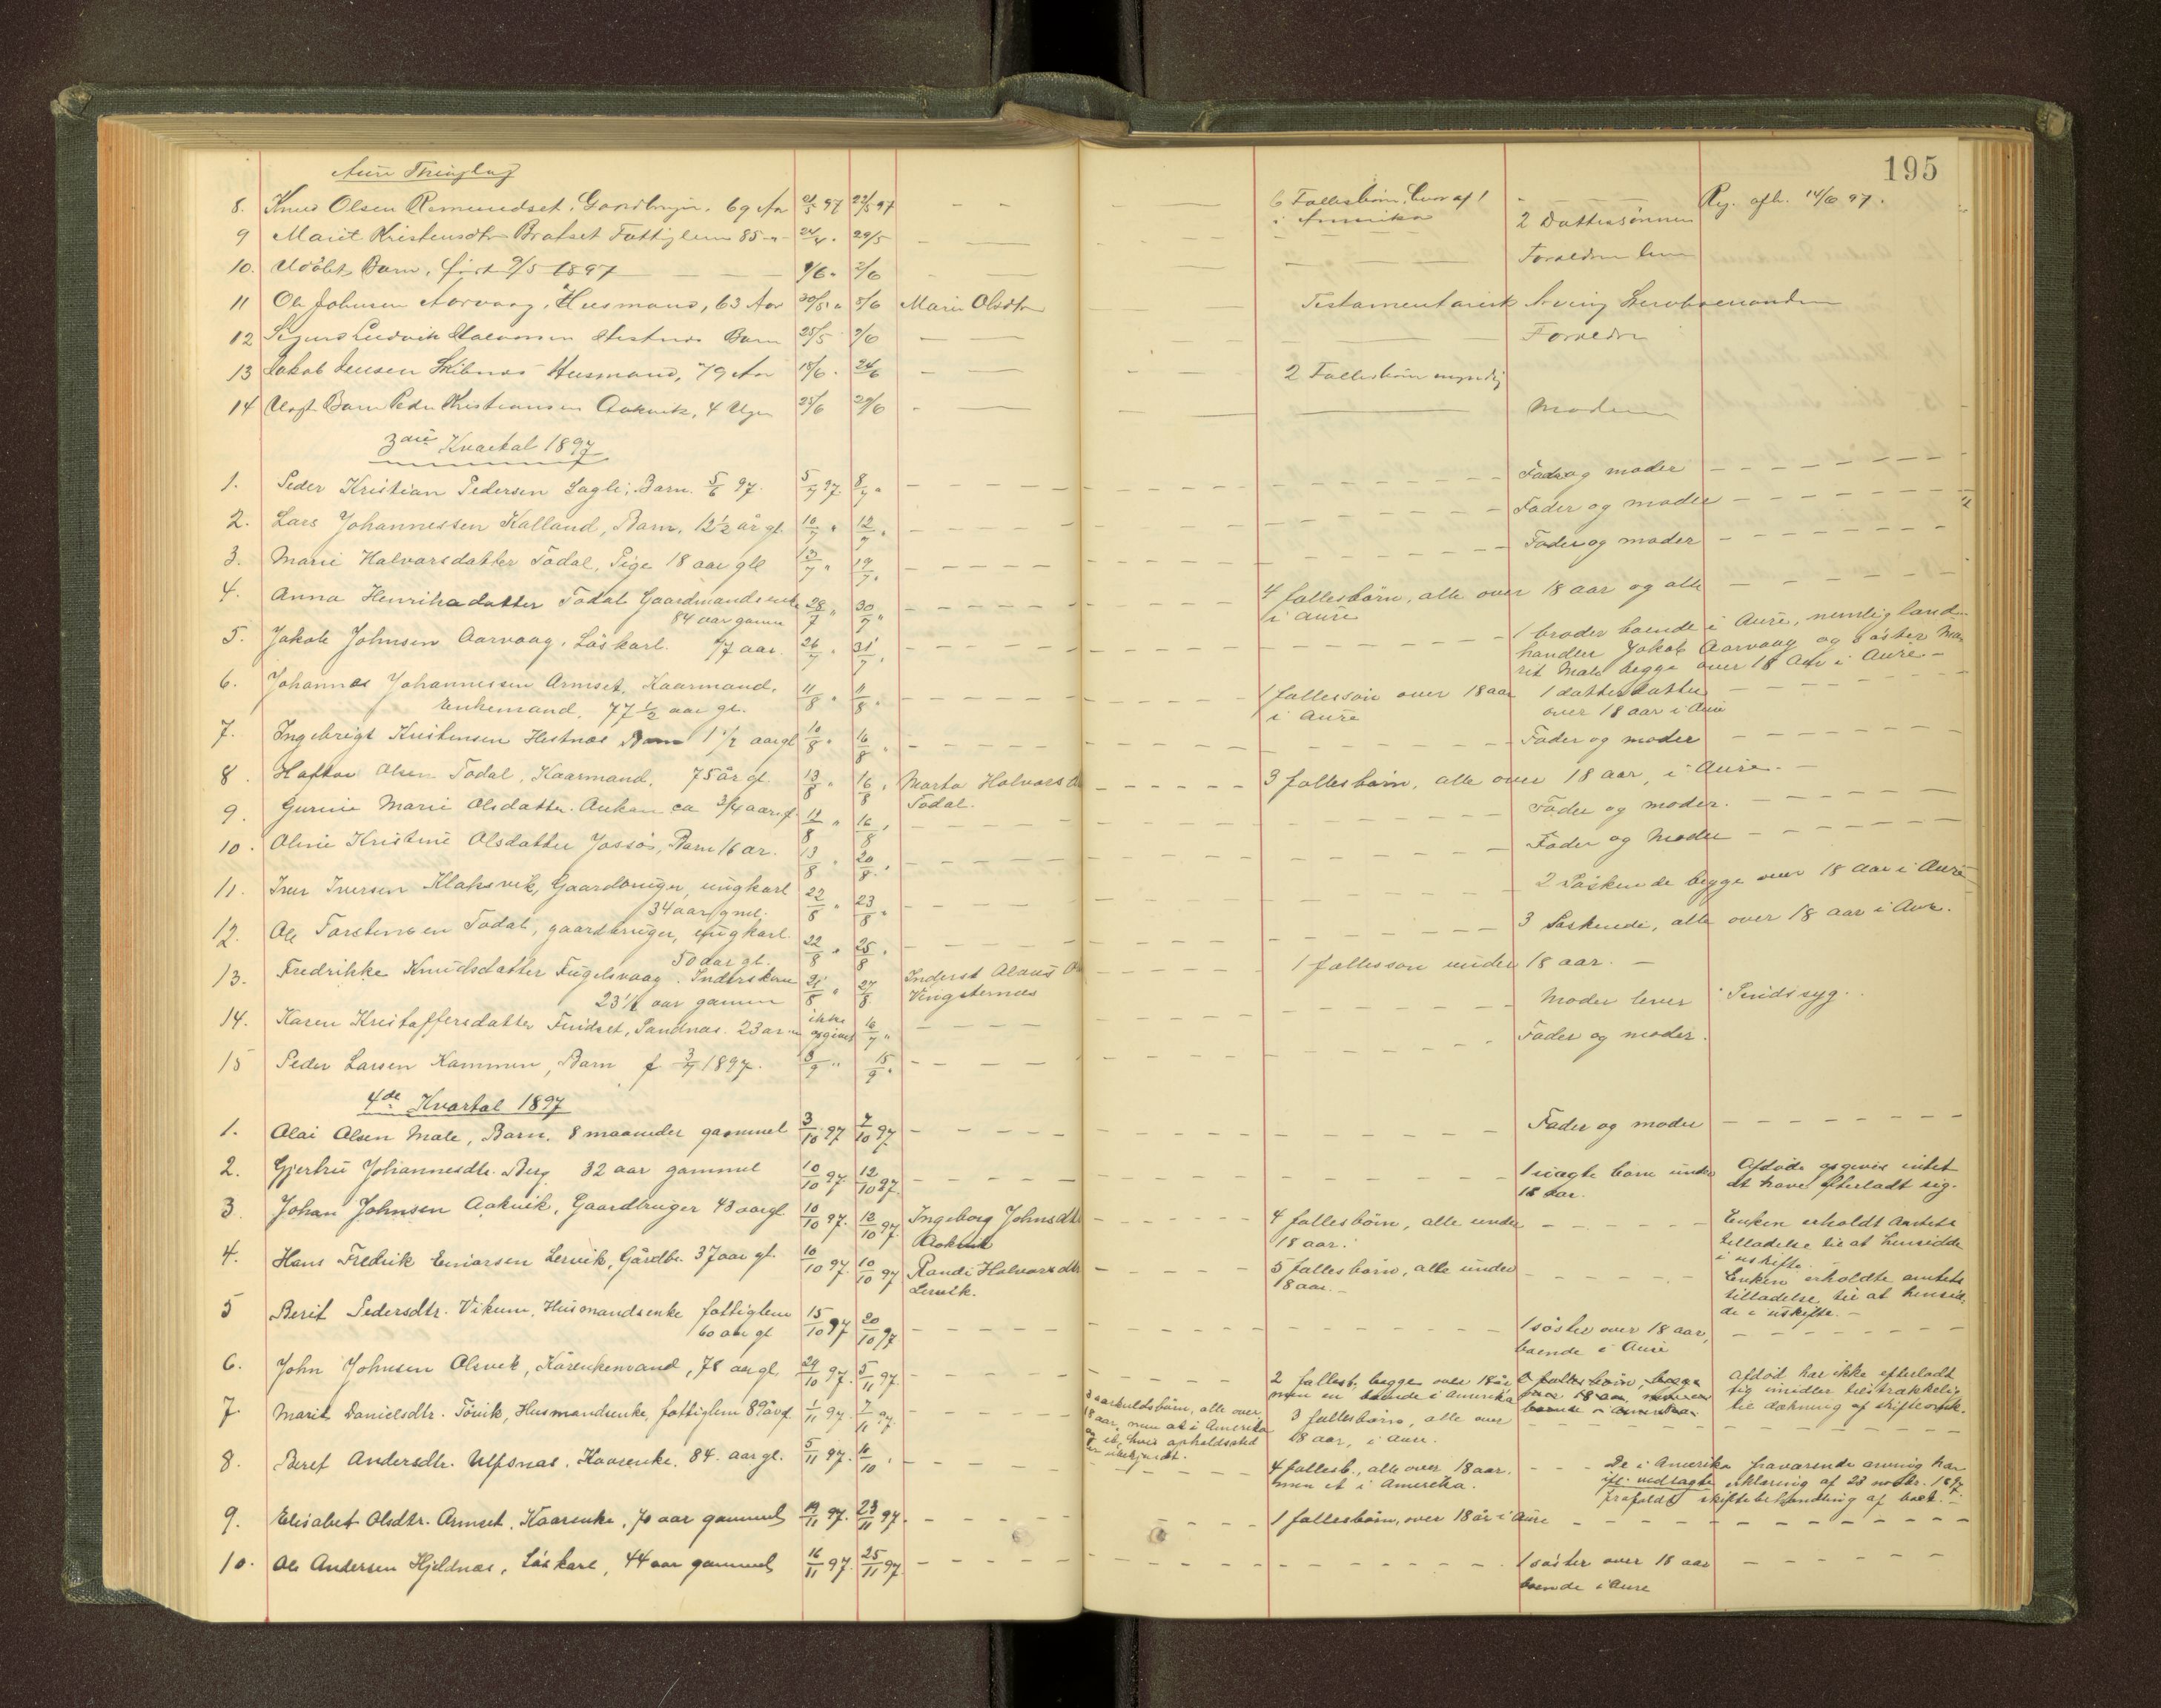 195
Aure Thinglag
8. Knud Olsen Remmundset, Gaardbruger, 69 Aar 21/5 97 22/5 97 - - 6 Fællesbörn, hvoraf 1 i Amerika - Reg. afh. 14/6 97.
9 Marit Kristensdtr Bratset Fattiglem 85 - " - 24/4 " 29/5 - 2 Dattersönner
10. Udöbt Barn, født 9/5 1897 9/6 " 2/6 - Forældre lever
11 Ole Johnsen Aarvaag, Husmand, 63 Aar 30/5 " 5/6 Marie Olsdtr - Testamentarisk Arving
12 Sigurd Ludvik Halvorsen Hestnes Barn 25/5 9/6 - Forældre
13 Jakob Jensen Skibnes Husmand, 79 Aar 18/6 24/6 - 2 Fællesbörn myndig
14 Uægt Barn Peder Kristiansen Aakvik, 4 Uger 25/6 29/6 - Moderen
3die Kvartal 1897
1. Peder Kristian Pedersen Lagli, Barn. 5/6 97. 5/7 97 8/7 " Fader og moder
2. Lars Johannessen Kalland, Barn, 12 1/2 år gl. 10/7 " 12/7 " Fader og moder
3. Marie Halvorsdatter Todal, Pige 18 aar gl 13/7 " 19/7 " Fader og moder
4. Anna Henriksdatter Todal Gaardmandsenke 28/7 " 30/7 " 4 fællesbörn, alle over 18 aar og alle
84 aar gamm i Aure
5. Jakob Johnsen Aarvaag, Löskarl. 77 aar. 26/7 " 31/7 " 1 broder boende i Aure, nemlig land-
handler Jakob Aarvaag og söster Ma-
rit Male begge over 18 Aar i Aure -
6. Johannes Johannessen Armset, Kaarmand, 11/8 " 11/8 " 1 fællessön over 18 aar 1 datterdatter
Enkemand, 77 1/2 aar gl. i Aure over 18 aar i Aure
7. Ingebrigt Kristensen Hestnes Barn 1 1/2 aar gl 10/8 " 16/8 " Fader og moder
8. Haftor Olsen Todal, Kaarmand, 75 år gl. 13/8 " 16/8 " Marta Halvorsd 3 fællesbörn, alle over 18 aar, i Aure. -
Todal.
9. Gurine Marie Olsdatter Aukan ca 3/4 aar gl. 11/8 " 16/8 " Fader og moder.
10. Oline Kristine Olsdatter Jössö, Barn 16 ar. 13/8 " 20/8 " Fader og Moder
11. Iver Iversen Klaksvik, Gaardbruger, ungkarl 22/8 " 23/8 " 2 Söskende begge over 18 Aar i Aure
34 aar gml.
12. Ole Torstensen Todal, gaardbruger, ungkarl. 22/8 " 25/8 " 3 Söskende, alle over 18 aar i Aure.
50 aar gl.
13. Fredrikke Knudsdatter Fugelsvaag. Inderstkone 21/8 " 27/8 Inderst Alaus 1 fællesson under 18 aar. -
23 1/2 aar gammel Vingsternes
14. Karen Kristoffersdatter Finset, Sandnes. 23 ar ikke opgivet 16/7 " Moder lever Sindssyg.
15 Peder Larsen Kammen, Barn f 3/7 1897. 8/9 " 15/9 " Fader og moder.
4de Kvartal 1897
1. Olai Olsen Male, Barn, 8 maaneder gammel 3/10 97 7/10 97 Fader og moder
2. Gjertru Johannesdtr. Berg 32 aar gammel 10/10 97. 12/10 97. 1 uægte barn under 18 aar. Afdöde opgives intet at have efterladt sig.
3. Johan Johnsen Aakvik, Gaardbruger 43 aar gl. 10/10 97. 12/10 97. Ingeborg Johnsdtr Aakvik 4 fællesbörn, alle under 18 aar. Enken erholdt Amtets tilladelse til at hensidde i uskifte. -
4. Hans Fredrik Einarsen Lervik, Gårdbr. 37 aar gl. 10/10 97. 10/10 97 Randi Halvorsdtr Lervik. 5 fællesbörn, alle under 18 aar. - Enken erholdte amtets tilladelse til at hensid-
de i uskifte. -
5 Berit Pedersdtr. Vikum, Husmandsenke fattiglem 15/10 97 20/10 97 1 söster over 18 aar, boende i Aure
60 aar gl
6. John Johnsen Olsvik, Kårenkemand, 78 aar gl. 29/10 97. 5/11 97. 2 fællesb. begge over 18 år men en boende i Amerika Afdöd. har ikke efterladt sig midler tilstrækkelig til dækning af skifteomk.
7. Marit Danielsdtr. Tövik, Husmandsenke, fattiglem 89 år gl. 1/11 97. 7/11 97. 3 særkuldsbörn, alle over
18 aar, men et i Amerika
og et, hvis opholdssted
er ubekjendt. 3 fællesbörn, alle over 18 aar, i Aure.
8. Beret Andersdtr. Ulfsnes, Kaarenke, 84. aar gl. 5/11 97. 10/10 . 4 fællesb., alle over 18 aar. men et i Amerika. De i Amerika fraværende arving har
ifl. vedlagte erklæring af 23 novbr. 1897
frafaldt skiftebehandling af boet. -
9. Elisabet Olsdtr. Armset, Kaarenke, 70 aar gammel 19/11 97. 23/11 97. 1 fællesbörn, over 18 år i Aure
10. Ole Andersen Hjeldnes, Löskarl, 44 aar gammel 16/11 97. 25/11 97. 1 söster over 18 aar
boende i Aure